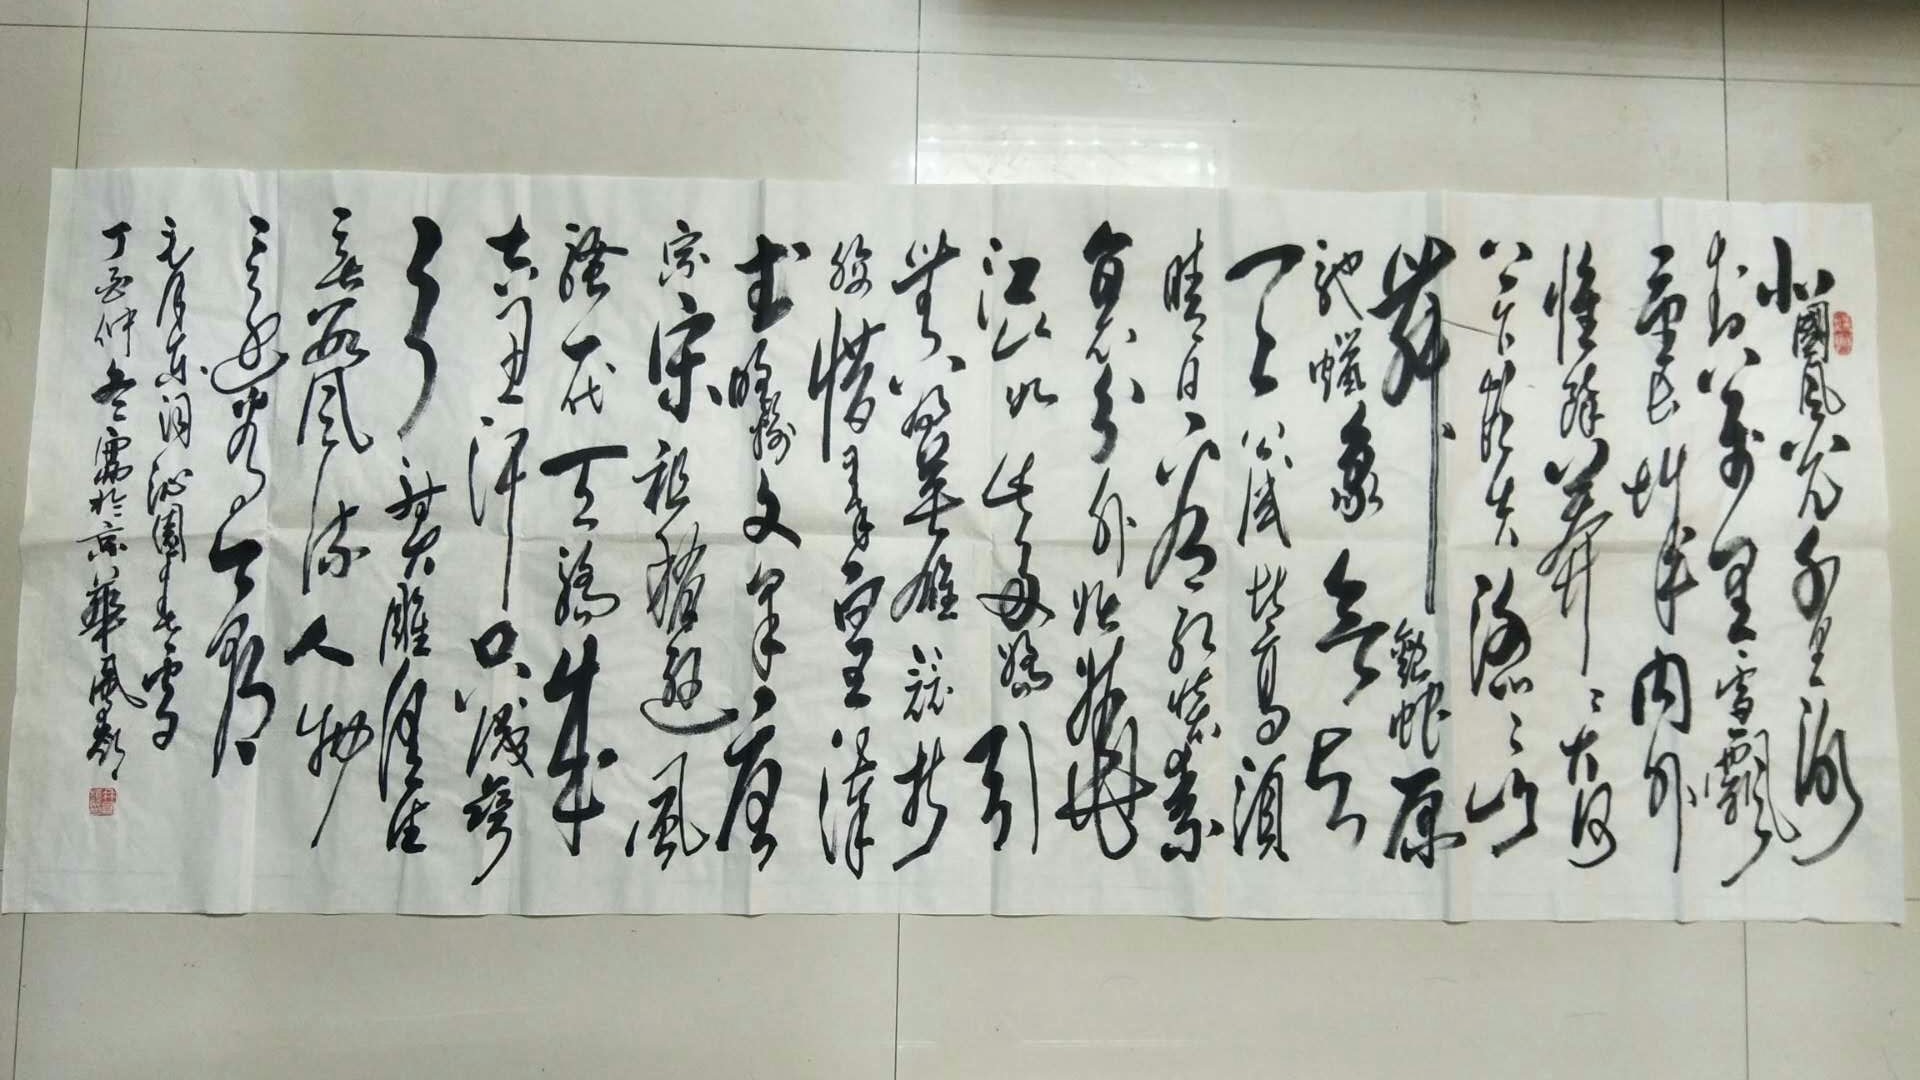 北國風光千里冰
封萬里雪飄
望長城內外
惟餘莽莽大河
上下頓失滔滔山
舞銀蛇原
馳蠟象欲與
天公試比高須
晴日看紅裝素
裹分外妖嬈
江山如此多嬌引
無數英雄競折
腰惜秦皇漢
武略輸文采唐
宗宋祖稍遜風
騷一代天驕成
吉思汗只識彎
弓射大雕俱往
矣數風流人物
還看今朝
毛澤東詞沁園春雪
丁酉仲冬 於京華